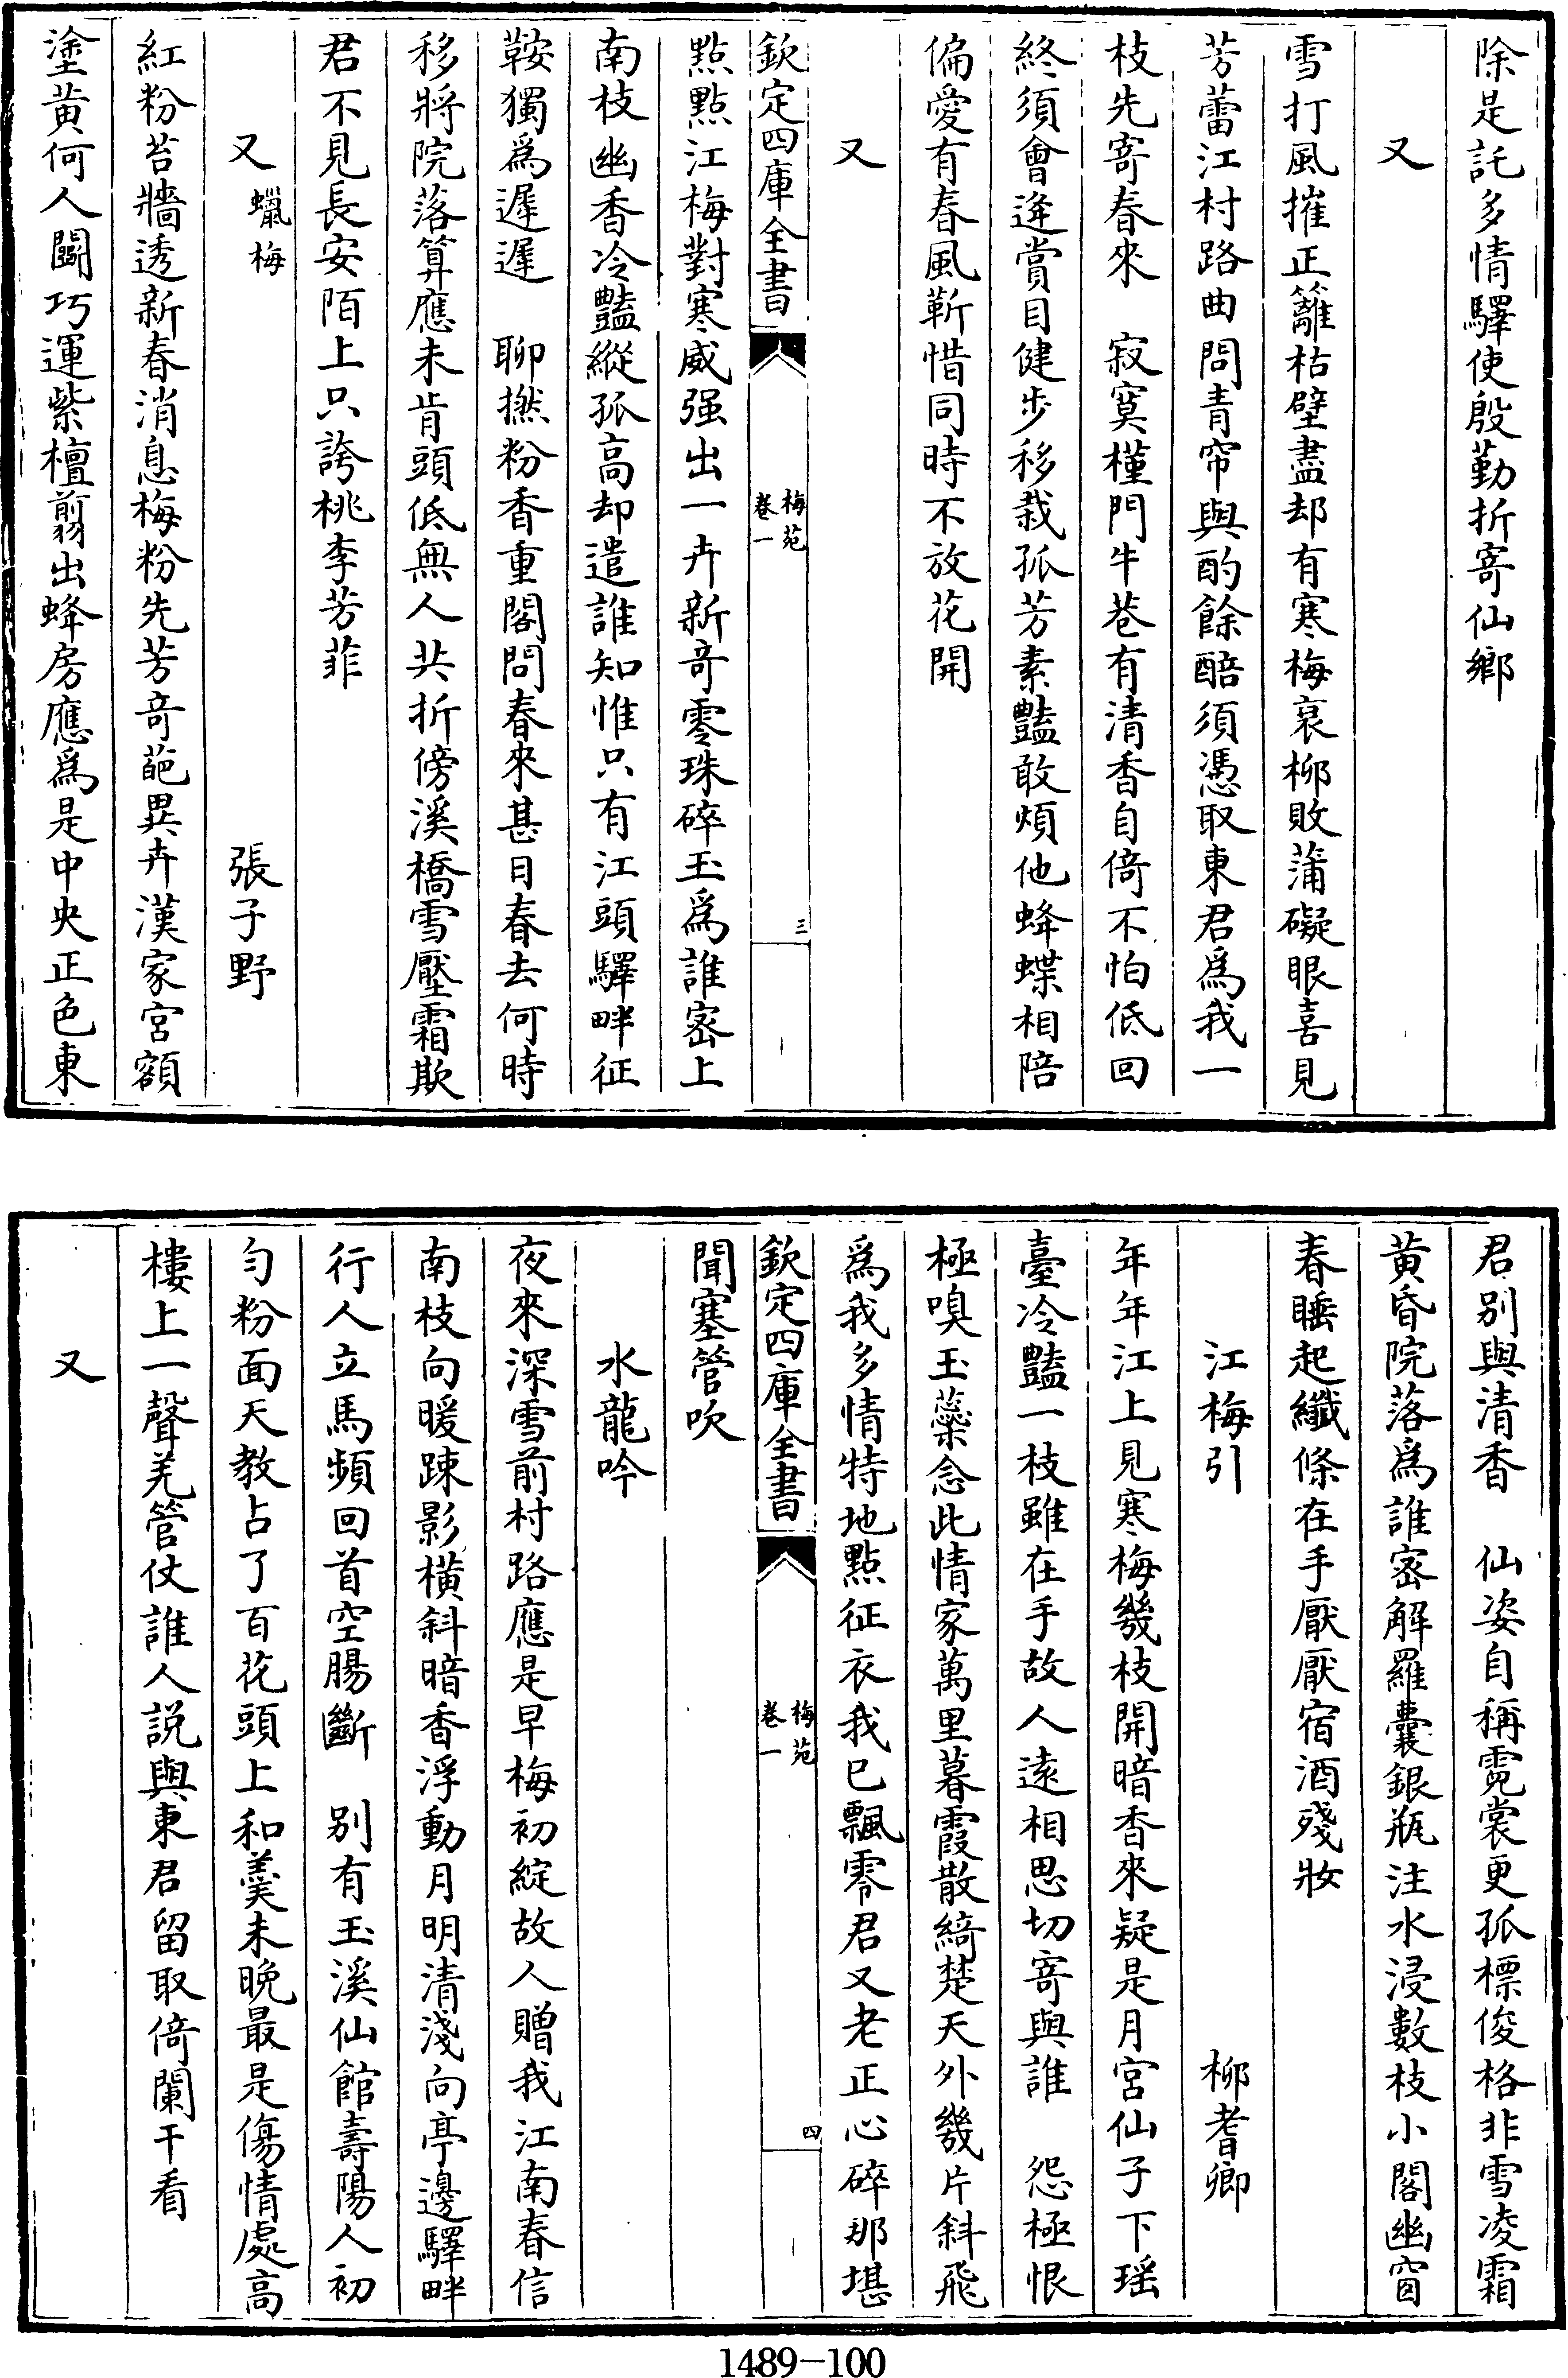 除是託多情驛使殷勤折寄仙鄉
又
雪打風摧正籬枯壁盡却有寒梅哀柳敗蒲礙眼喜見
芳蕾江村路曲問青帘與酌餘醅須憑取東君爲我一
枝先寄春來　寂寞槿門牛巷有清香自倚不怕低回
終須會逢賞目健步移栽孤芳素豔敢煩他蜂蝶相陪
偏愛有春風靳惜同時不放花開
又
欽定四庫全書
梅苑
卷一
三
點點江梅對寒威强出一卉新奇零珠碎玉爲誰宻上
南枝幽香冷豔縱孤高却遣誰知惟只有江頭驛畔征
鞍獨爲遲遲　聊撚粉香重閣問春來甚日春去何時
移將院落算應未肯頭低無人共折傍溪橋雪壓霜欺
君不見長安陌上只誇桃李芳菲
又　蠟梅　張子野
紅粉苔牆透新春消息梅粉先芳奇葩異卉漢家宮額
塗黃何人鬬巧運紫檀翦出蜂房應爲是中央正色東
君别與清香　仙姿自稱霓裳更孤標俊格非雪凌霜
黃昏院落爲誰宻解羅囊銀瓶注水浸數枝小閣幽窗
春睡起纖條在手厭厭宿酒殘妝
江梅引　柳耆卿
年年江上見寒梅幾枝開暗香來疑是月宮仙子下瑶
臺冷豔一枝雖在手故人遠相思切寄與誰　怨極恨
極嗅玉蘂念此情家萬里暮霞散綺楚天外幾片斜飛
爲我多情特地點征衣我已飄零君又老正心碎那堪
欽定四庫全書
梅苑
卷一
四
聞塞管吹
水龍吟
夜來深雪前村路應是早梅初綻故人贈我江南春信
南枝向暖踈影橫斜暗香浮動月明清淺向亭邊驛畔
行人立馬頻回首空腸斷　别有玉溪仙館壽陽人初
勻粉面天教占了百花頭上和羹未晚最是傷情處高
樓上一聲羌管仗誰人説與東君留取倚闌干看
又
1489-100